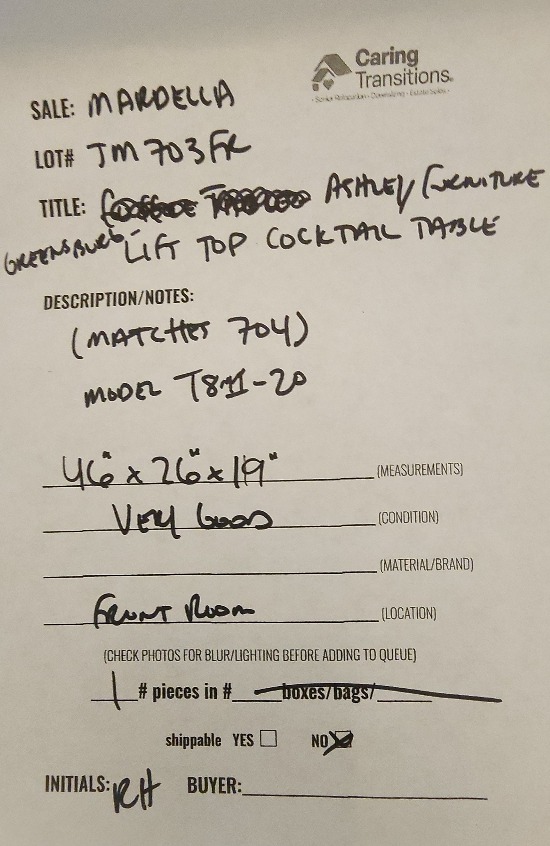 Caring
Transitions®
- Senior Relocation - Downsizing - Estate Sales -
SALE: MARDELLA
LOT# JM703FR
TITLE: ASHLEY FURNITURE
GREENSBURG LIFT TOP COCKTAIL TABLE
DESCRIPTION/NOTES:
(MATCHES 704)
MODEL T811-20
46" x 26" x 19" (MEASUREMENTS)
VERY GOOD (CONDITION)
(MATERIAL/BRAND)
FRONT ROOM (LOCATION)
(CHECK PHOTOS FOR BLUR/LIGHTING BEFORE ADDING TO QUEUE)
1 # pieces in # boxes/bags/
shippable YES NO
INITIALS: RH BUYER: